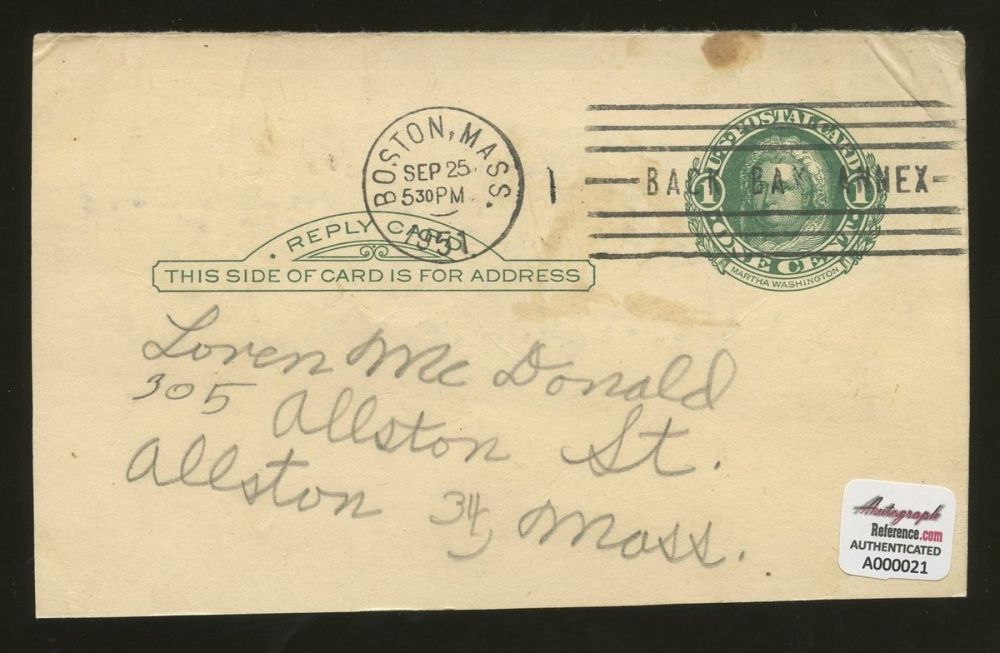 BOSTON, MASS.
SEP 25
5 30 PM
1951
1
BACK BAY ANNEX
U.S. POSTAL CARD
1 1
ONE CENT
MARTHA WASHINGTON
REPLY CARD
THIS SIDE OF CARD IS FOR ADDRESS
Loren Mc Donald
305 Allston St.
Allston 34, Mass.
Autograph
Reference.com
AUTHENTICATED
A000021